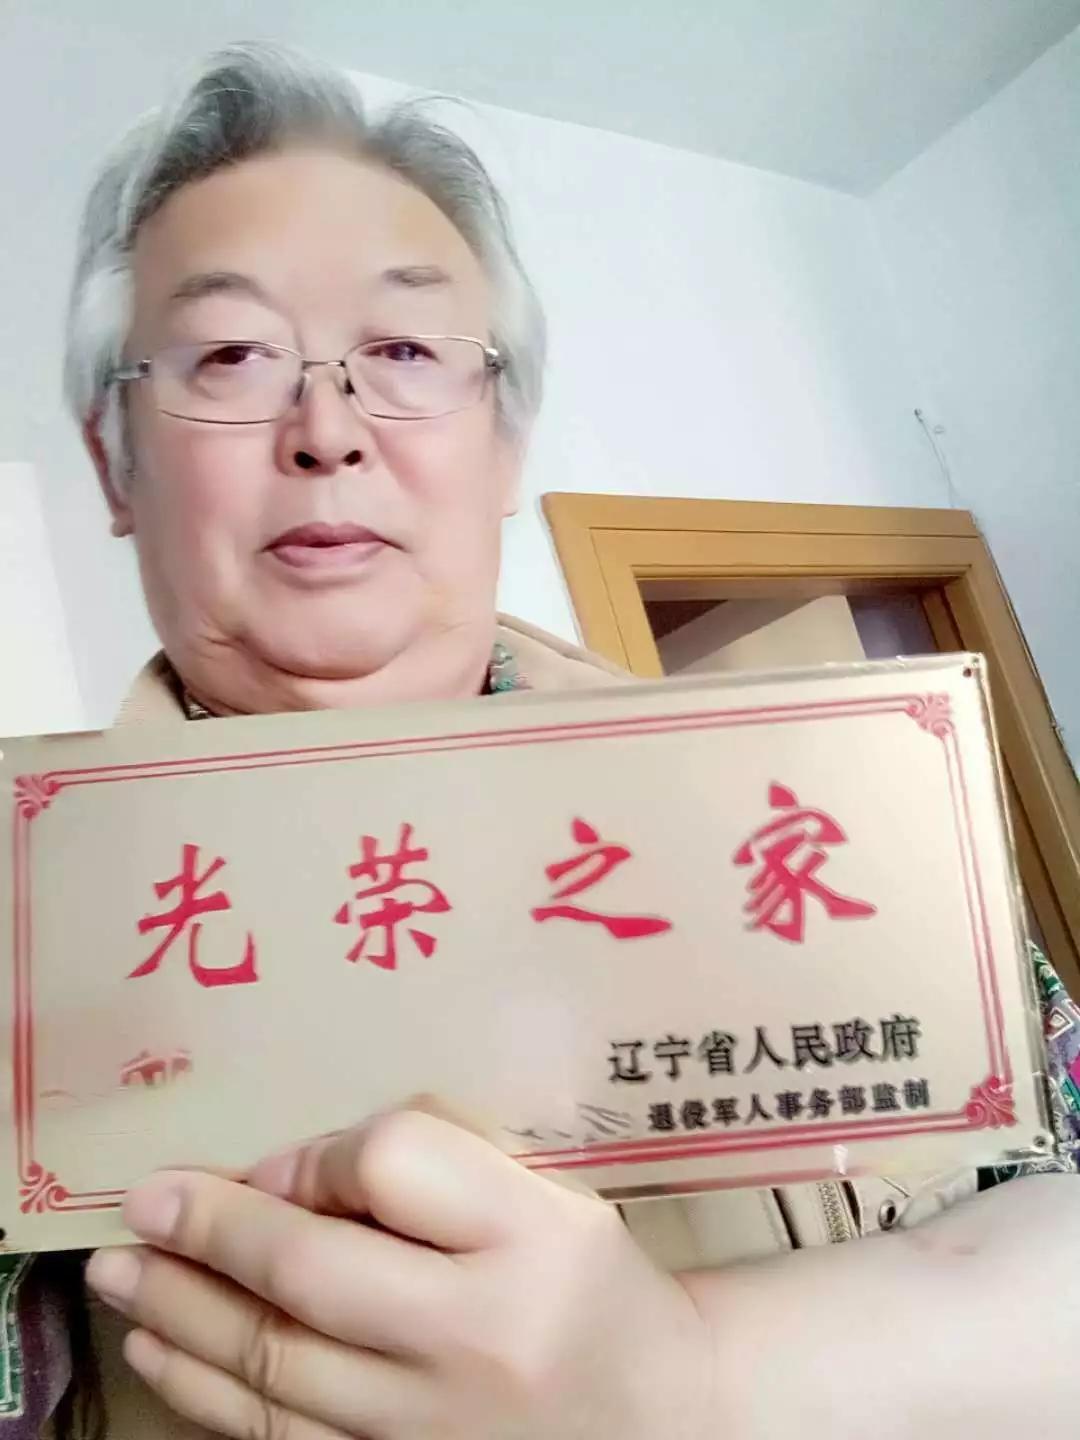 光荣之家
辽宁省人民政府
退役军人事务部监制